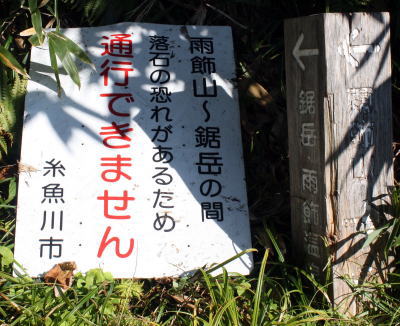 雨飾山～鋸岳の間
落石の恐れがあるため
通行できません
糸魚川市
← 鋸岳 雨飾温
← 雨飾